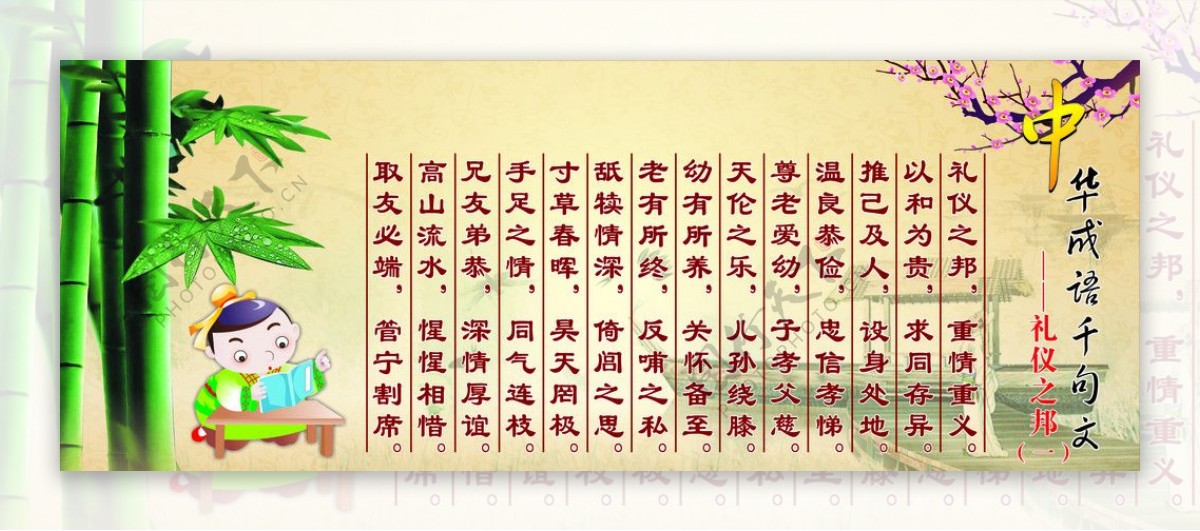 中华成语千句文
——礼仪之邦(一)
礼仪之邦，重情重义。
以和为贵，求同存异。
推己及人，设身处地。
温良恭俭，忠信孝悌。
尊老爱幼，子孝父慈。
天伦之乐，儿孙绕膝。
幼有所养，关怀备至。
老有所终，反哺之私。
舐犊情深，倚闾之思。
寸草春晖，昊天罔极。
手足之情，同气连枝。
兄友弟恭，深情厚谊。
高山流水，惺惺相惜。
取友必端，管宁割席。